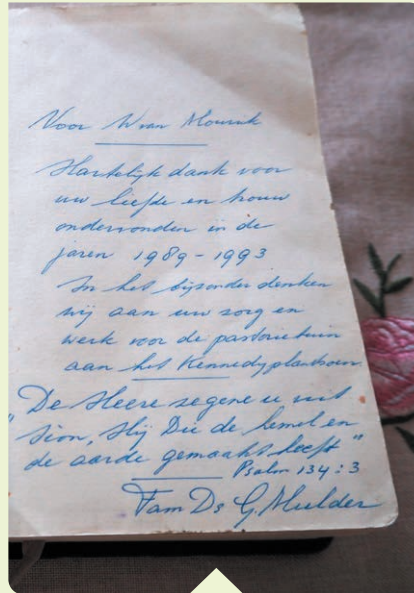 Voor W van Mourik
Hartelijk dank voor
uw liefde en trouw
ondervonden in de
jaren 1989-1993
In het bijzonder denken
wij aan uw zorg en
werk voor de pastorietuin
aan het Kennedyplantsoen
"De Heere zegene u uit
Sion, Hij Die de hemel en
de aarde gemaakt heeft"
Psalm 134:3
Fam Ds G. Mulder